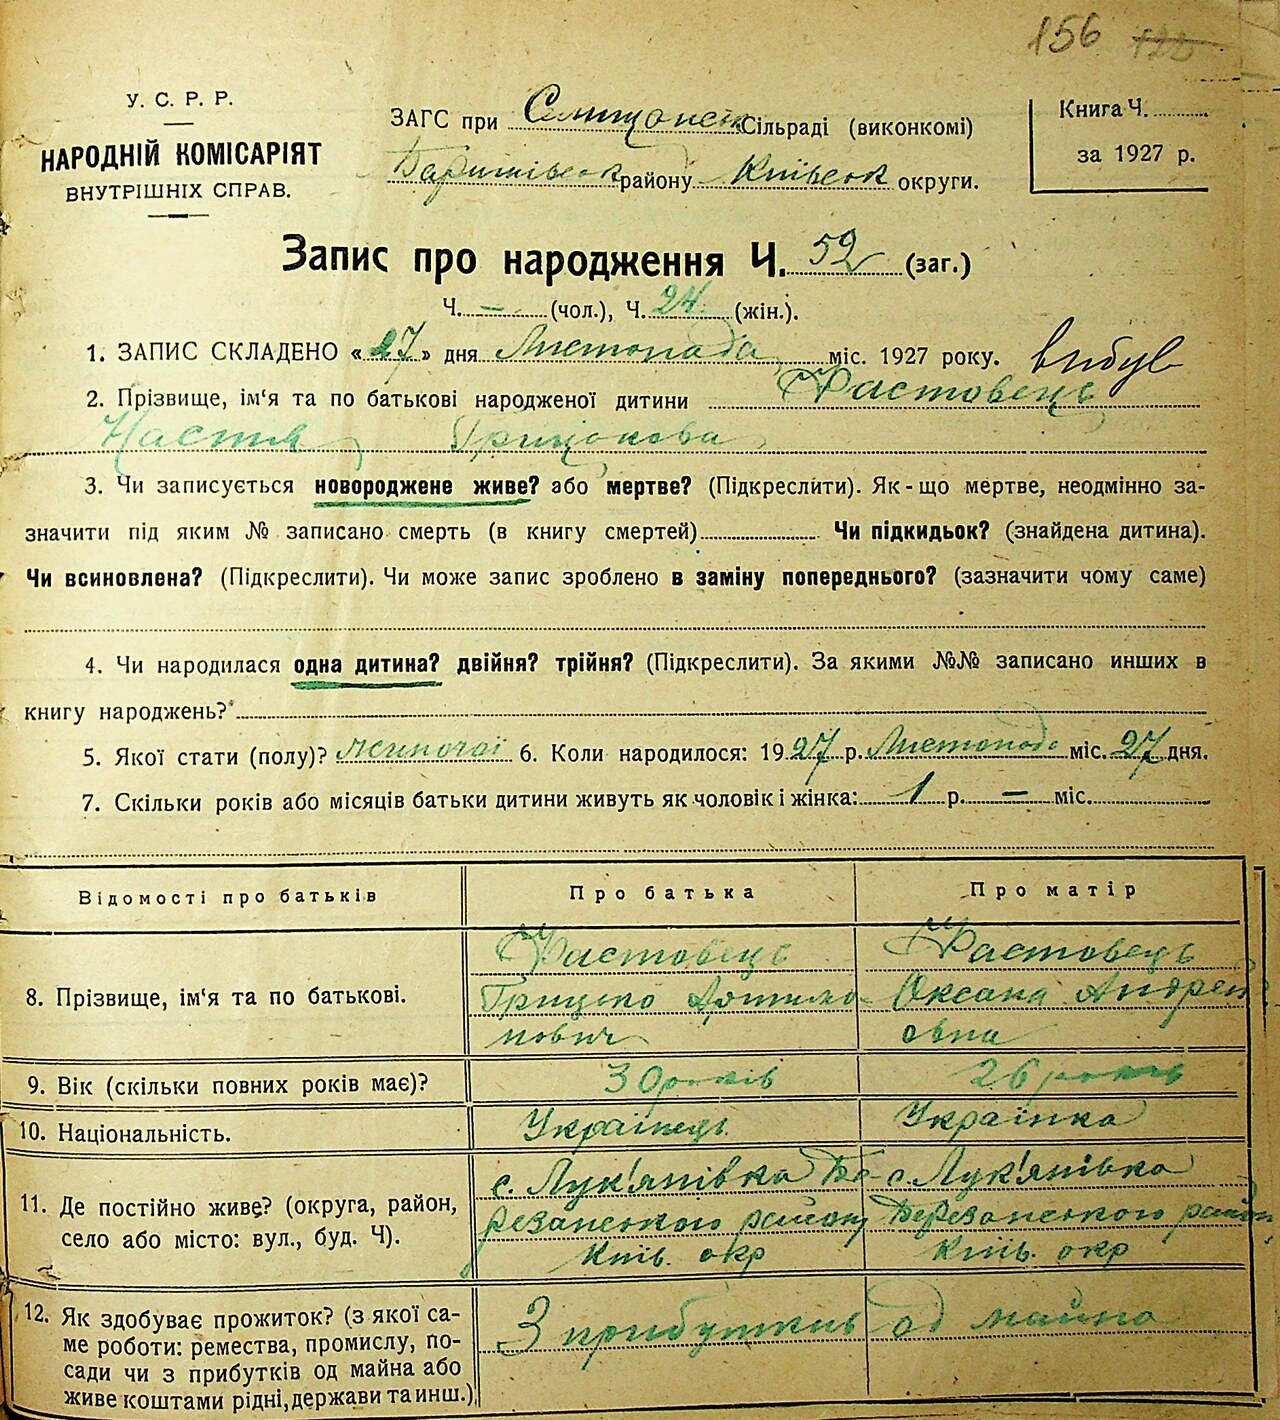 156 122
У. С. Р. Р.
НАРОДНІЙ КОМІСАРІЯТ
ВНУТРІШНІХ СПРАВ.
ЗАГС при Селищанськ Сільраді (виконкомі)
Баришівськ району Київськ округи.
Книга Ч.
за 1927 р.
Запис про народження Ч. 52 (заг.)
Ч. – (чол.), Ч. 24 (жін.).
1. ЗАПИС СКЛАДЕНО «27» дня Листопада міс. 1927 року. вибув
2. Прізвище, ім‘я та по батькові народженої дитини Фастовець
Настя Грицькова
3. Чи записується новороджене живе? або мертве? (Підкреслити). Як-що мертве, неодмінно за-
значити під яким № записано смерть (в книгу смертей) Чи підкидьок? (знайдена дитина).
Чи всиновлена? (Підкреслити). Чи може запис зроблено в заміну попереднього? (зазначити чому саме)
4. Чи народилася одна дитина? двійня? трійня? (Підкреслити). За якими №№ записано инших в
книгу народжень?
5. Якої стати (полу)? жиночої 6. Коли народилося: 1927 р. Листопада міс. 27 дня.
7. Скільки років або місяців батьки дитини живуть як чоловік і жінка: 1 р. – міс.
Відомості про батьків Про батька Про матір
8. Прізвище, ім‘я та по батькові.
Фастовець
Грицько
нович
Фастовець
Оксана Андрей
овна
9. Вік (скільки повних років має)? 30 років 26 років
10. Національність. Українець Українка
11. Де постійно живе? (округа, район,
село або місто: вул., буд. Ч).
с. Лук'янівка Бе-
резанського району
Київ. окр
с. Лук'янівка
Березанського район
Київ. окр
12. Як здобуває прожиток? (з якої са-
ме роботи: ремества, промислу, по-
сади чи з прибутків од майна або
живе коштами рідні, держави та инш.)
З прибутків од майна